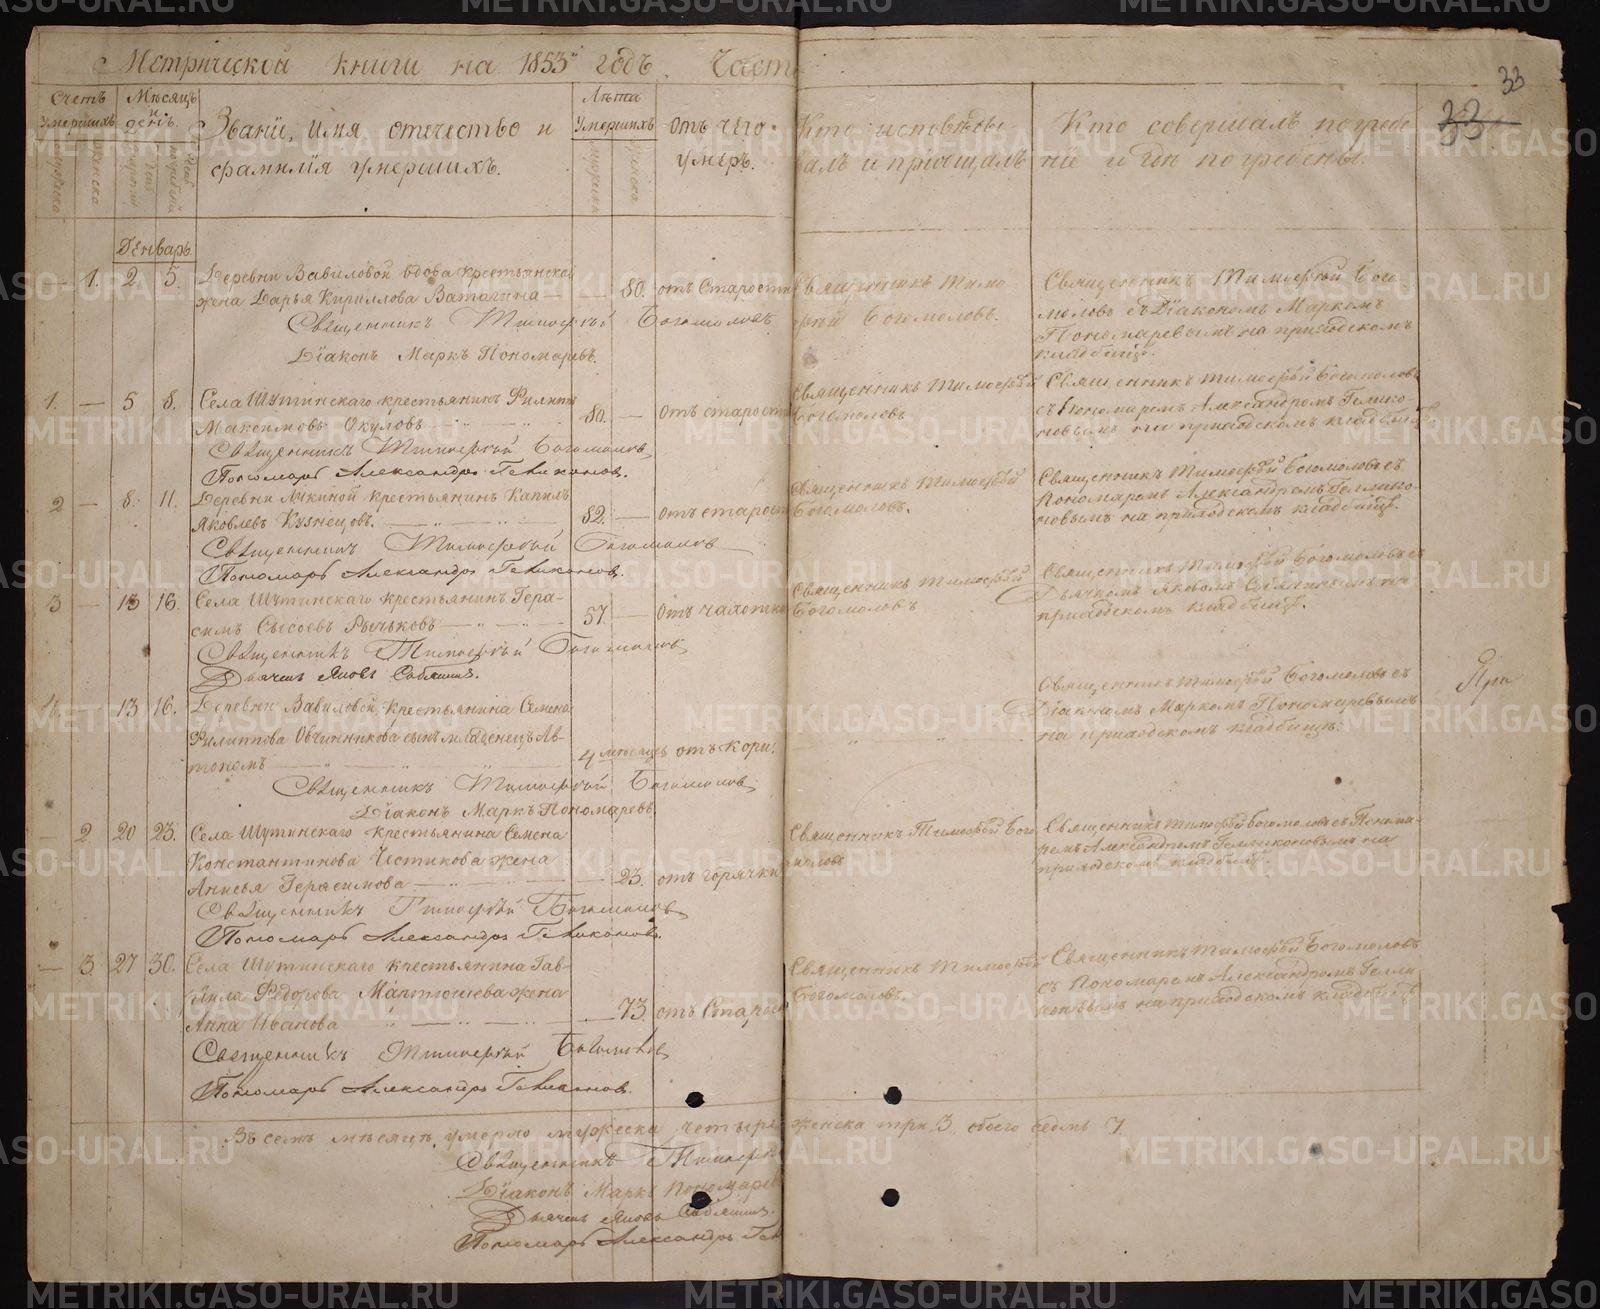 Метрической книги на 1853й годъ. Часть
33
33
Счетъ умершихъ
Мѣсяцъ и день
Званіе, имя отечество и фамилія умершихъ.
Лѣта умершихъ
отъ чего умеръ.
Кто исповѣдовалъ и пріобщалъ
Кто совершалъ погребеніе и гдѣ погребены.
мужеска
женска
мужеска
женска
Генварь
— 1. 2 5. Деревни Вавиловой вдова крестьянская
жена Дарья Кириллова Ватагина — — 80. отъ Старости
Священникъ Тимофѣй Богомоловъ.
Священникъ Тимофѣй Бого
моловъ съ Діакономъ Маркомъ
Пономаревымъ на приходскомъ
кладбищѣ.
Священникъ Тимофѣй Богомоловъ
Діаконъ Маркъ Пономаревъ.
1. — 5 8. Села Шутинскаго крестьянинъ Филиппъ
Максимовъ Окуловъ 80. — Отъ старости
Священникъ Тимофѣй
Богомоловъ
Священникъ Тимофѣй Богомоловъ
съ Пономаремъ Александромъ Гелико-
новымъ на приходскомъ кладбищѣ.
Священникъ Тимофѣй Богомоловъ
Пономарь Александръ Геликоновъ.
2 — 8. 11. Деревни Ачкиной крестьянинъ
Яковлевъ Кузнецовъ. 82. — отъ старости
Священникъ Тимофѣй
Богомоловъ.
Священникъ Тимофѣй Богомоловъ съ
Пономаремъ Александромъ Гелико-
новымъ на приходскомъ кладбищѣ.
Священникъ Тимофѣй Богомоловъ
Пономарь Александръ Геликоновъ.
3 — 13 16. Села Шутинскаго крестьянинъ Гера-
симъ Сысоевъ Рычковъ 57. — Отъ чахотки
Священникъ Тимофѣй
Богомоловъ
Священникъ Тимофѣй Богомоловъ съ
Дьячкомъ Яковомъ на
приходскомъ кладбищѣ.
Священникъ Тимофѣй Богомоловъ
Дьячекъ Яковъ
4. — 13 16. Деревни Вавиловой крестьянина Семена
Филиппова Овчинникова сынъ младенецъ Ав-
тономъ 4 мѣсяцъ отъ кори.
Священникъ Тимофѣй Богомоловъ съ
Діакономъ Маркомъ Пономаревымъ
на приходскомъ кладбищѣ.
При
Священникъ Тимофѣй Богомоловъ
Діаконъ Маркъ Пономаревъ.
— 2. 20 23. Села Шутинскаго крестьянина Семена
Константинова Чистякова жена
Анисья Герасимова — 23. отъ горячки
Священникъ Тимофѣй Бого
моловъ
Священникъ Тимофѣй Богомоловъ съ Понома-
ремъ Александромъ Геликоновымъ на
приходскомъ кладбищѣ.
Священникъ Тимофѣй Богомоловъ
Пономарь Александръ Геликоновъ.
— 3. 27 30. Села Шутинскаго крестьянина Гав-
ріила Федорова Мартюшева жена
Анна Иванова — 73. отъ Старости
Священникъ Тимофѣй
Богомоловъ.
Священникъ Тимофѣй Богомоловъ
съ Пономаремъ Александромъ Гелли
коновымъ на приходскомъ кладбищѣ
Священникъ Тимофѣй Богомоловъ
Пономарь Александръ Геликоновъ.
Въ семъ мѣсяцѣ умерло мужеска четыре женска три, 3, обоего седмь 7
Священникъ Тимофѣй
Діаконъ Маркъ Пономаревъ
Дьячекъ Яковъ
Пономарь Александръ Гел
METRIKI.GASO-URAL.RU